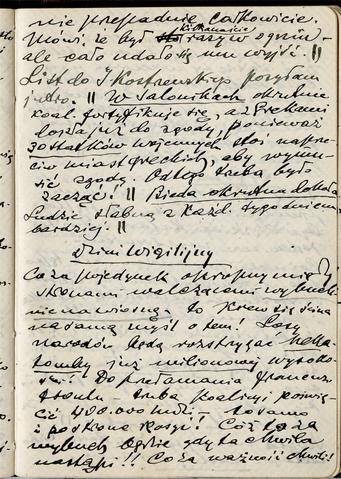 nie przepadnie całkowicie.
Mówi, że był kilkanaście razy w ogniu –
ale cało udało się mu wyjść. ||
List do I Kostrzewskiego posyłam
jutro. || W Salonikach okrutnie
koal. fortyfikuje się, a z Grekami
doszła już do zgody, ponieważ
30 statków wojennych stoi naprze-
ciw miast greckich, aby wymu-
sić zgodę. Od tego trzeba było
zacząć! || Bieda okrutna dokoła
Ludzie słabną z każd. tygodniem
bardziej. ||
Dzień Wigilijny
Co za pojedynek okropny między
stronami walczącemi wybuch-
nie na wiosnę, to krew się ścina
na samą myśl o tem! Losy
narodów będą rozstrzygać heka-
tomby już milionowej wysoko-
ści! Do przełamania francus.
frontu – trzeba podobno poświę-
cić 400.000 ludzi – to samo
i podbona Rosji! Cóż to za
wybuch będzie gdy ta chwila
nastąpi!! Co za ważność chwili!